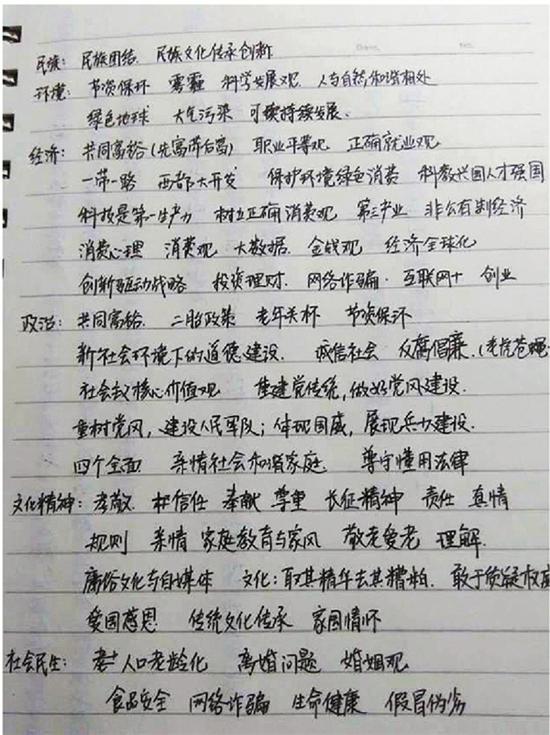 民族：民族团结 民族文化传承创新
环境：节资保环 雾霾 科学发展观 人与自然和谐相处
绿色地球 大气污染 可续持续发展.
经济：共同富裕(先富带后富) 职业平等观 正确就业观
一带一路 西部大开发 保护环境绿色消费 科教兴国人才强国
科技是第一生产力 树立正确消费观 第三产业 非公有制经济
消费心理 消费观 大数据. 金钱观 经济全球化
创新驱动战略 投资理财. 网络诈骗. 互联网+ 创业
政治：共同富裕. 二胎政策 老年关怀 节资保环
新社会环境下的道德建设. 诚信社会 反腐倡廉.(老虎苍蝇
社会主义核心价值观 重建党传统,做好党风建设.
重树党风,建设人民军队;体现国威,展现兵力建设.
四个全面 亲情社会和谐家庭 尊守懂用法律
文化精神：孝敬. 信任 奉献 尊重 长征精神 责任 真情
规则 亲情 家庭教育与家风 敬老爱老 理解.
庸俗文化与自媒体 文化：取其精华去其糟粕. 敢于质疑权威
爱国感恩 传统文化传承 家国情怀
社会民生： 人口老龄化 离婚问题 婚姻观
食品安全 网络诈骗 生命健康 假冒伪劣